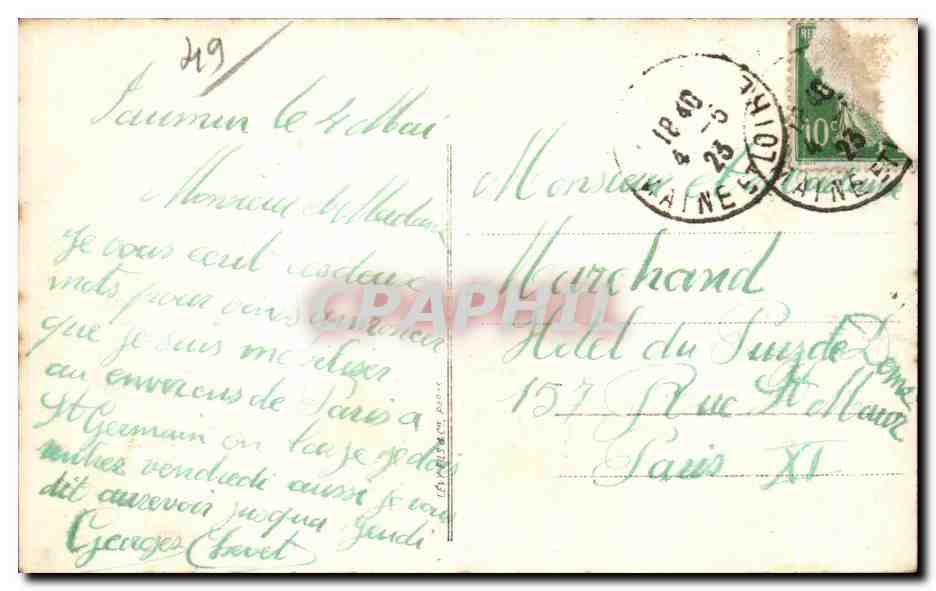 49
Saumur le 4 Mai
Monsieur et Madame
Je vous ecrit ces deux
mots pour vous anoncer
que je suis mobiliser
au environs de Paris a
St Germain on Laye je dois
rentrer vendredi aussi je vous
dit aurevoir jusqua jeudi
Georges Chevet
Monsieur et Madame
Marchand
Hotel du Puy de Dome
157 Rue St Maur
Paris XI
18 40
4 -5
23
MAINE ET LOIRE
10c
23
MAINE ET
CPAPHIL